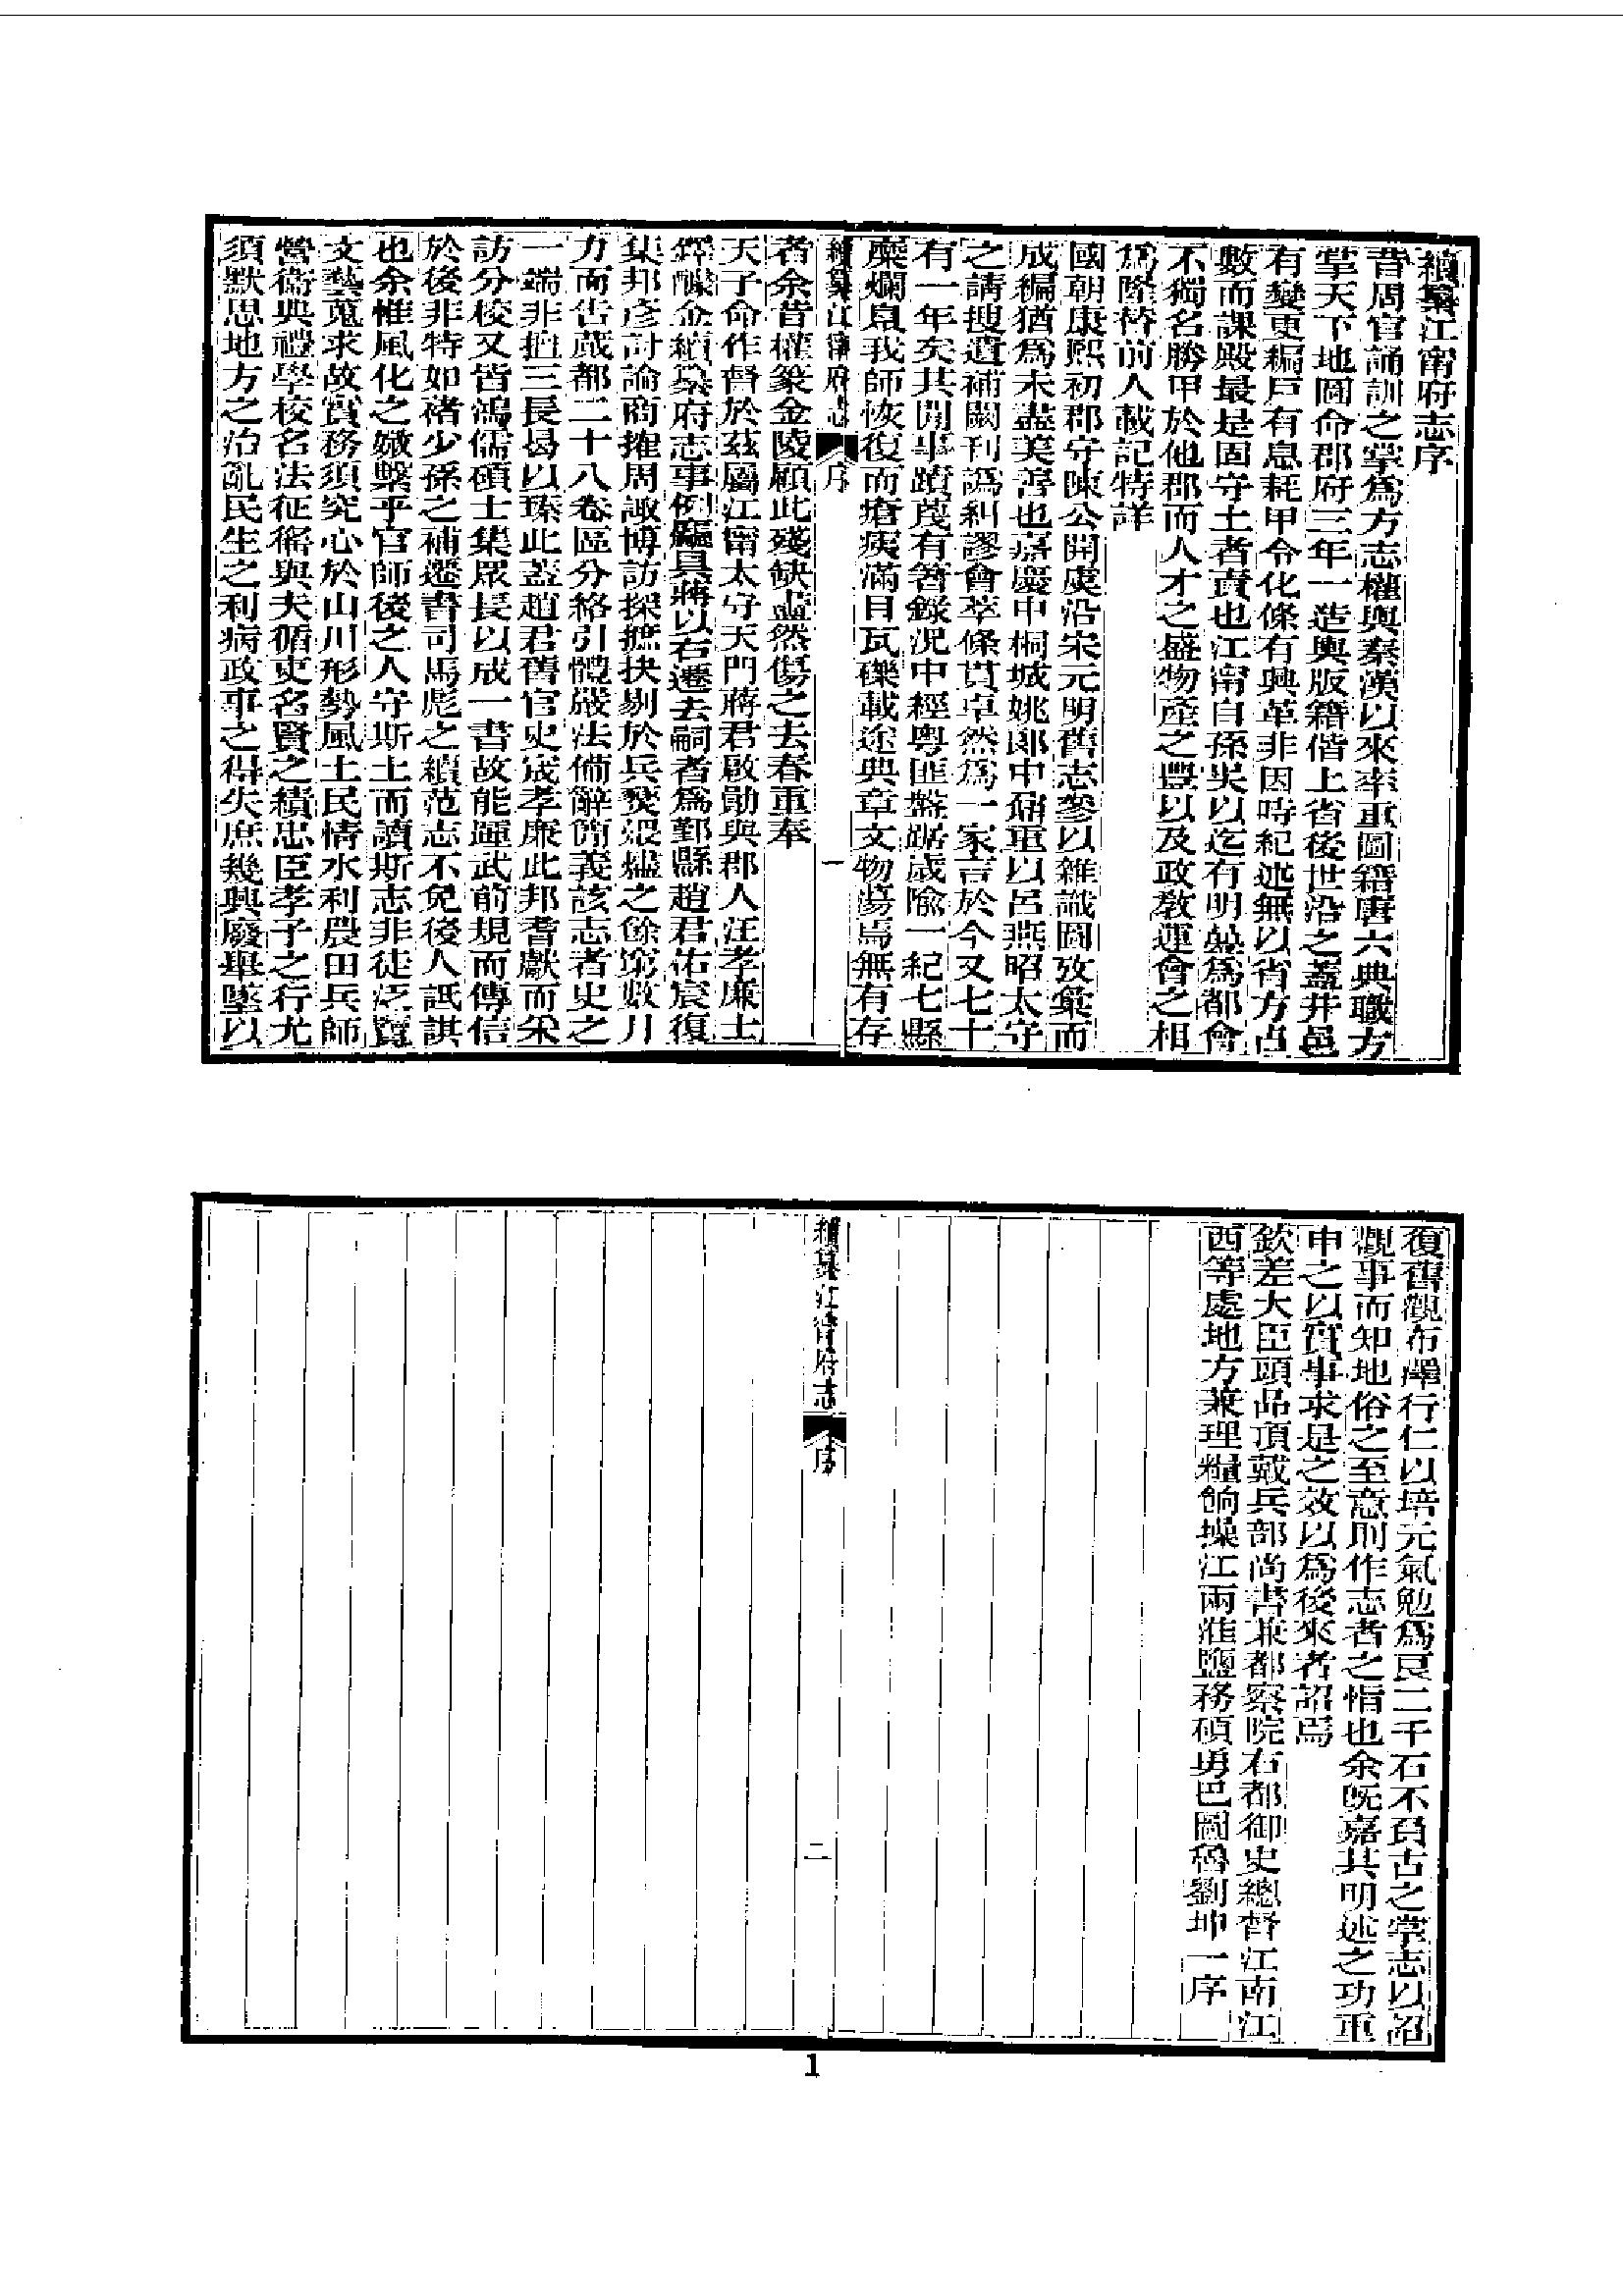 續纂江甯府志序
昔周官誦訓之掌爲方志權輿秦漢以來率重圖籍唐六典職方
掌天下地圖命郡府三年一造輿版籍偕上省後世沿之蓋井邑
有變更編戶有息耗甲令化條有興革非因時紀述無以省方占
數而課殿最是固守土者責也江甯自孫吳以迄有明奠爲都會
不獨名勝甲於他郡而人才之盛物產之豐以及政敎運會之相
爲隆替前人載記特詳
國朝康熙初郡守陳公開虞沿宋元明舊志參以雜識圖攷彙而
成編猶爲未盡美善也嘉慶中桐城姚郎中鼐重以呂燕昭太守
之請搜遺補闕刊譌糾謬會萃條貫卓然爲一家言於今又七十
有一年矣其閒事蹟蔑有著錄況中經粵匪盤踞歲陷一紀七縣
糜爛息我師恢復而瘡痍滿目瓦礫載途典章文物蕩焉無有存
續纂江甯府志
序
一
者余昔權篆金陵顧此殘缺盡然傷之去春重奉
天子命作督於茲屬江甯太守天門蔣君啟勛與郡人汪孝廉士
鐸醵金續纂府志事例觕具蔣以右遷去嗣者爲鄞縣趙君佑宸復
集邦彥討論商搉周諏博訪採摭抉剔於兵燹煨燼之餘窮數月
力而告蕆都二十八卷區分絡引體嚴法備辭簡義該志者史之
一端非擅三長曷以臻此蓋趙君舊官史宬孝廉此邦耆獻而采
訪分校又皆鴻儒碩士集眾長以成一書故能運武前規而傳信
於後非特如褚少孫之補遷書司馬彪之續范志不免後人詆諆
也余惟風化之媺槩乎官師後之人守斯土而讀斯志非徒泛覽
文藝蒐求故實務須究心於山川形勢風土民情水利農田兵師
營衞典禮學校名法征徭與夫循吏名賢之績忠臣孝子之行尤
須默思地方之治亂民生之利病政事之得失庶幾興廢舉墜以
復舊觀布澤行仁以培元氣勉爲良二千石不負古之掌志以詔
觀事而知地俗之至意則作志者之恉也余旣嘉其明述之功重
申之以實事求是之效以爲後來者詔焉
欽差大臣頭品頂戴兵部尚書兼都察院右都御史總督江南江
西等處地方兼理糧餉操江兩淮鹽務碩勇巴圖魯劉坤一序
續纂江甯府志
序
二
1